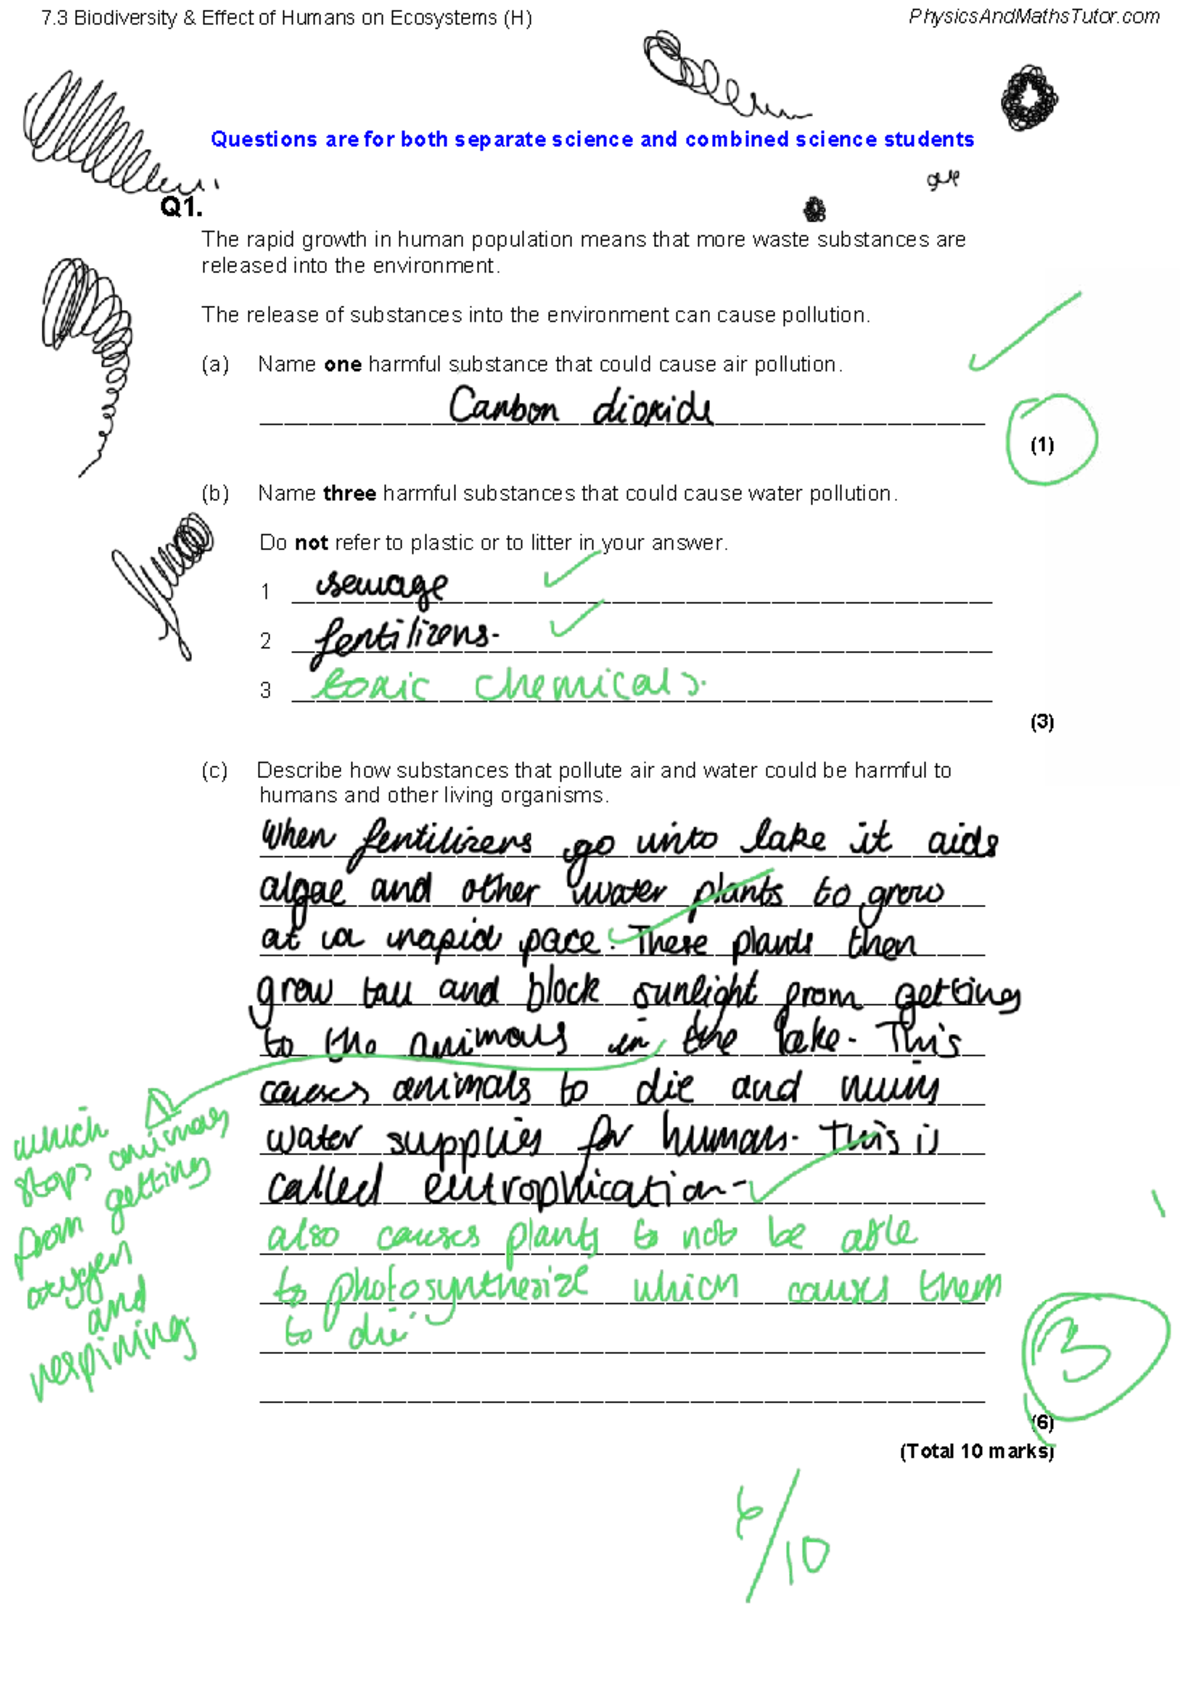 7.3 Biodiversity & Effect of Humans on Ecosystems (H)
PhysicsAndMathsTutor.com
Questions are for both separate science and combined science students
Q1.
The rapid growth in human population means that more waste substances are
released into the environment.
The release of substances into the environment can cause pollution.
(a) Name one harmful substance that could cause air pollution.
Carbon dioxide
(1)
(b) Name three harmful substances that could cause water pollution.
Do not refer to plastic or to litter in your answer.
1 sewage
2 fertilizers.
3 toxic chemicals.
(3)
(c) Describe how substances that pollute air and water could be harmful to
humans and other living organisms.
When fertilizers go into lake it aids
algae and other water plants to grow
at a rapid pace. These plants then
grow tall and block sunlight from getting
to the animals in the lake. This
causes animals to die and ruin
water supplies for humans. This is
called eutrophication-
also causes plants to not be able
to photosynthesize which causes them
to die
which
stops animals
from getting
oxygen
and
respiring
3
(6)
(Total 10 marks)
6/10